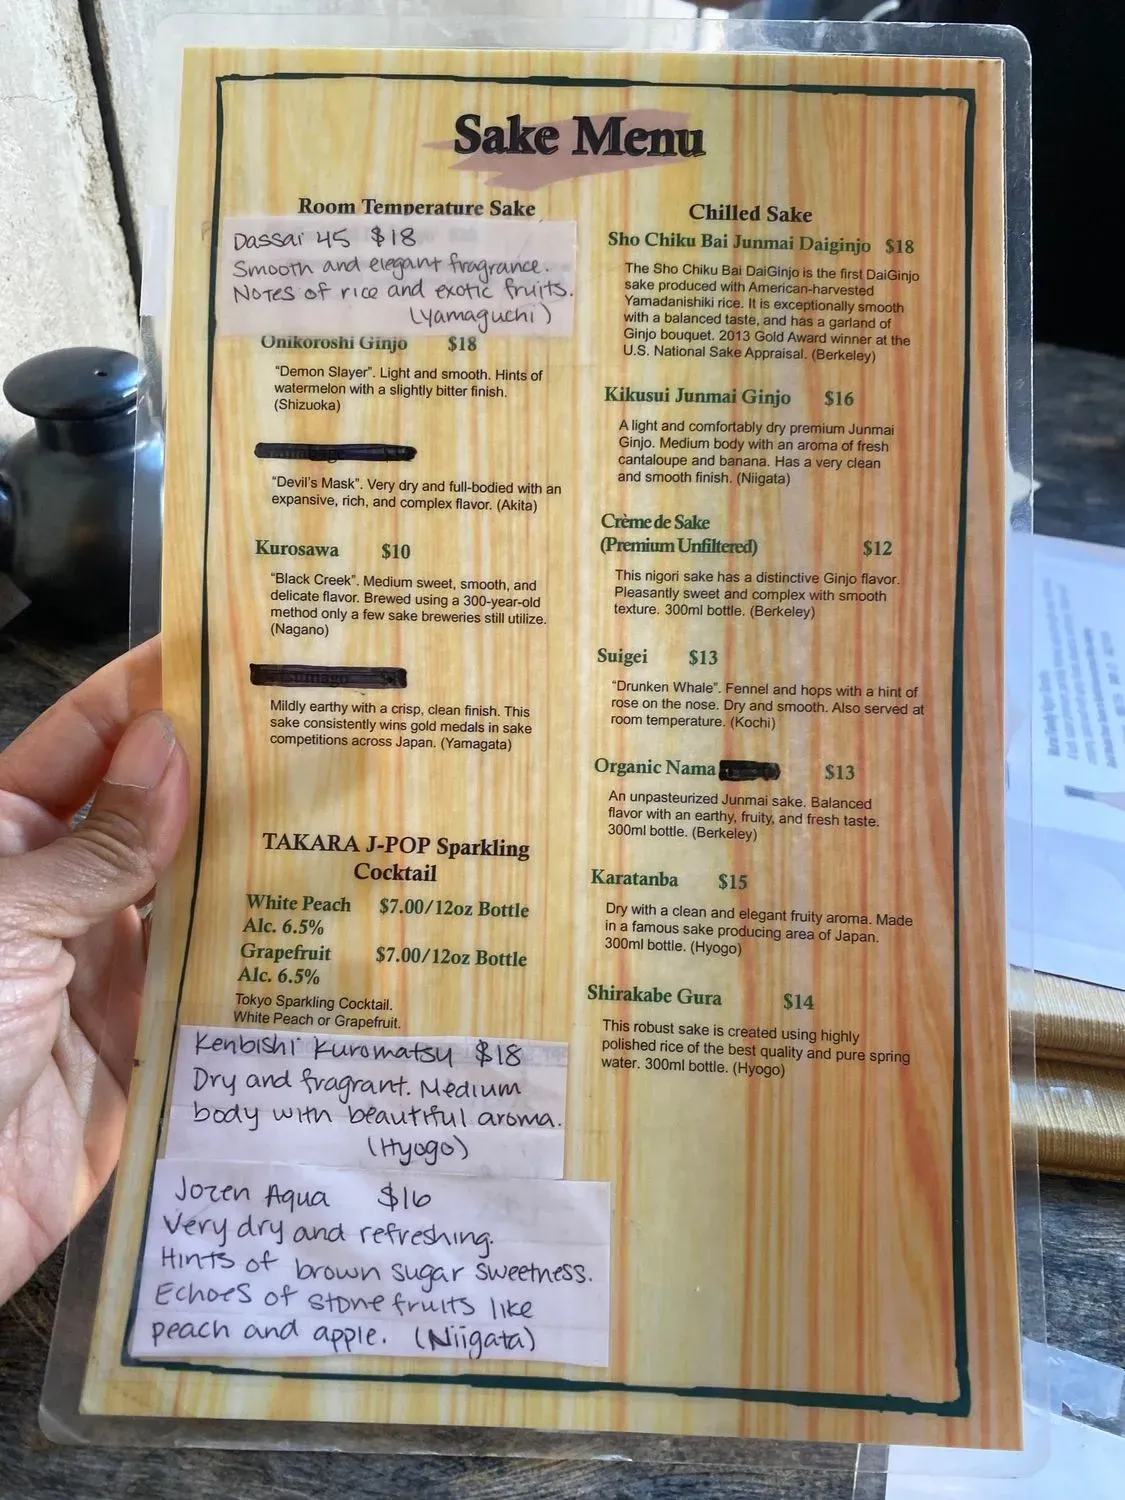 Sake Menu
Room Temperature Sake
Dassai 45 $18
Smooth and elegant fragrance.
Notes of rice and exotic fruits.
(Yamaguchi)
Onikoroshi Ginjo $18
"Demon Slayer". Light and smooth. Hints of
watermelon with a slightly bitter finish.
(Shizuoka)
"Devil's Mask". Very dry and full-bodied with an
expansive, rich, and complex flavor. (Akita)
Kurosawa $10
"Black Creek". Medium sweet, smooth, and
delicate flavor. Brewed using a 300-year-old
method only a few sake breweries still utilize.
(Nagano)
Mildly earthy with a crisp, clean finish. This
sake consistently wins gold medals in sake
competitions across Japan. (Yamagata)
TAKARA J-POP Sparkling
Cocktail
White Peach $7.00/12oz Bottle
Alc. 6.5%
Grapefruit $7.00/12oz Bottle
Alc. 6.5%
Tokyo Sparkling Cocktail.
White Peach or Grapefruit.
Kenbishi Kuromatsu $18
Dry and fragrant. Medium
body with beautiful aroma.
(Hyogo)
Jozen Aqua $16
Very dry and refreshing.
Hints of brown sugar sweetness.
Echoes of stone fruits like
peach and apple. (Niigata)
Chilled Sake
Sho Chiku Bai Junmai Daiginjo $18
The Sho Chiku Bai DaiGinjo is the first DaiGinjo
sake produced with American-harvested
Yamadanishiki rice. It is exceptionally smooth
with a balanced taste, and has a garland of
Ginjo bouquet. 2013 Gold Award winner at the
U.S. National Sake Appraisal. (Berkeley)
Kikusui Junmai Ginjo $16
A light and comfortably dry premium Junmai
Ginjo. Medium body with an aroma of fresh
cantaloupe and banana. Has a very clean
and smooth finish. (Niigata)
Crème de Sake
(Premium Unfiltered) $12
This nigori sake has a distinctive Ginjo flavor.
Pleasantly sweet and complex with smooth
texture. 300ml bottle. (Berkeley)
Suigei $13
"Drunken Whale". Fennel and hops with a hint of
rose on the nose. Dry and smooth. Also served at
room temperature. (Kochi)
Organic Nama $13
An unpasteurized Junmai sake. Balanced
flavor with an earthy, fruity, and fresh taste.
300ml bottle. (Berkeley)
Karatanba $15
Dry with a clean and elegant fruity aroma. Made
in a famous sake producing area of Japan.
300ml bottle. (Hyogo)
Shirakabe Gura $14
This robust sake is created using highly
polished rice of the best quality and pure spring
water. 300ml bottle. (Hyogo)